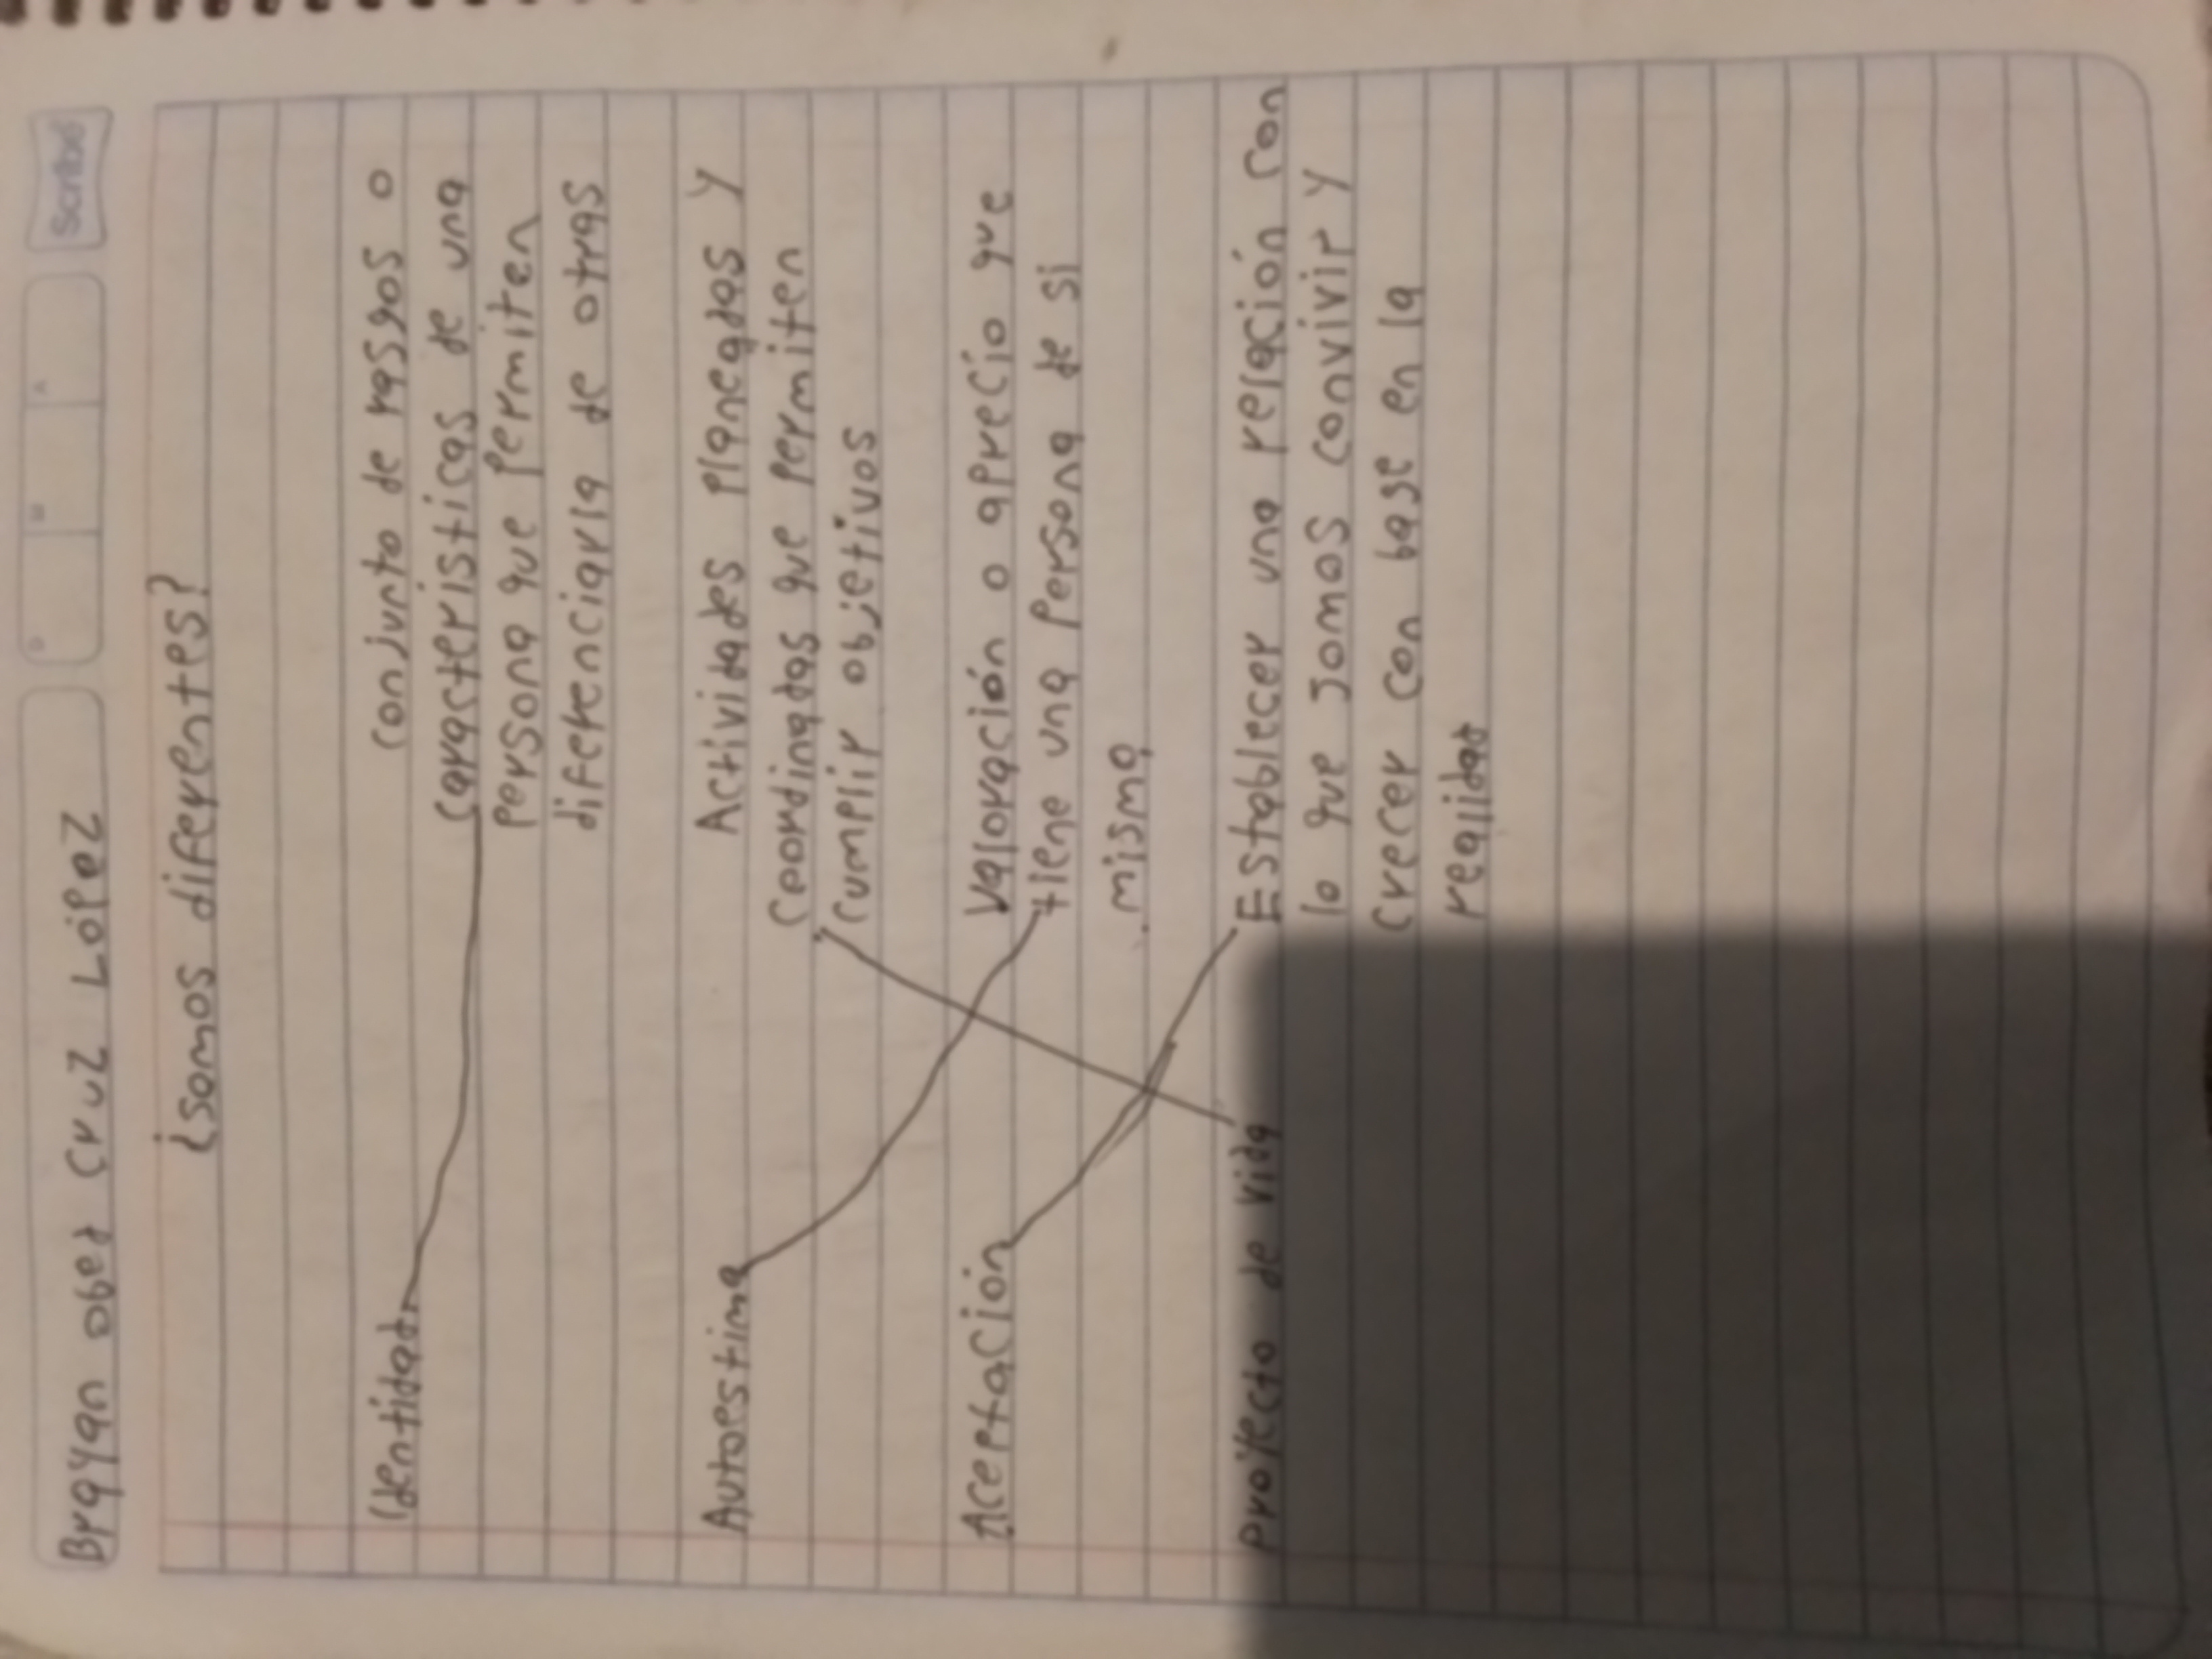 Brayan obed Cruz López
D M A
Scribe
¿Somos diferentes?
Identidad
conjunto de rasgos o
características de una
persona que permiten
diferenciarla de otras
Autoestima
Actividades planeadas y
Coordinadas que permiten
cumplir objetivos
Aceptación
Valoración o aprecio que
tiene una persona de si
misma
Proyecto de vida
Establecer una relación con
lo que somos convivir y
crecer con base en la
realidad